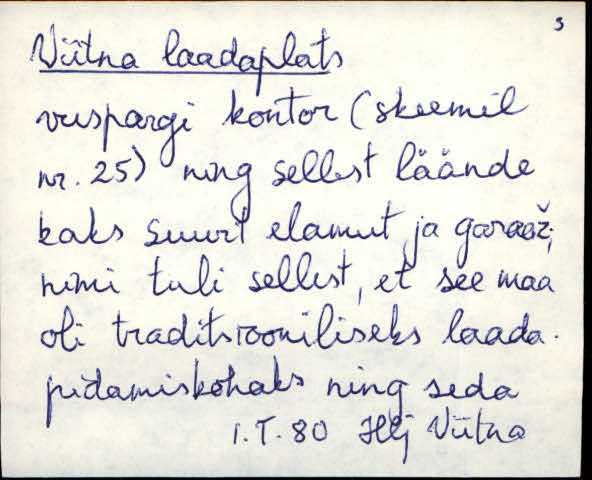 3
Viitna laadaplats
vuspargi kontor (skeemil
nr. 25) ning sellest läände
kaks suurt elamut ja garaaž;
nimi tuli sellest, et see maa
oli traditsiooniliseks laada-
pidamiskohaks ning seda
I.T. 80 Hlj Viitna